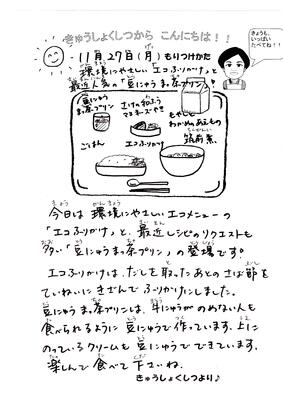 きゅうしょくしつから こんにちは！！
きょうも、
いっぱい
たべてね！！
11月27日(月) もりつけかた
環境にやさしい「エコふりかけ」と
最近人気の「豆にゅうまっ茶プリン」!
豆にゅう
まっ茶プリン
さけの和ふう
マヨネーズやき
もやしと
わかめのあえもの
ごはん
エコふりかけ
ちくぜんに
筑前煮
今日は 環境にやさしい エコメニューの
「エコふりかけ」と、最近レシピのリクエストも
多い「豆にゅうまっ茶プリン」の登場です。
エコふりかけは、だしを取ったあとのさば節を
ていねいに きざんで ふりかけにしました。
豆にゅうまっ茶プリンは、牛にゅうがのめない人も
食べられるように 豆にゅうで 作っています。上に
のっているクリームも 豆にゅうで できています。
楽しんで 食べて 下さいね。
きゅうしょくしつより♪